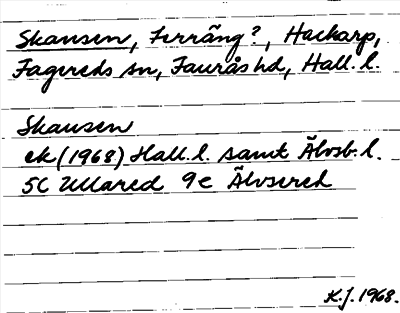 Skansen, Terräng?, Hackarp,
Fagereds sn, Faurås hd, Hall. l.
Skansen
ek (1968) Hall. l. samt Älvsb. l.
5C Ullared 9c Älvsered
K.J. 1968.